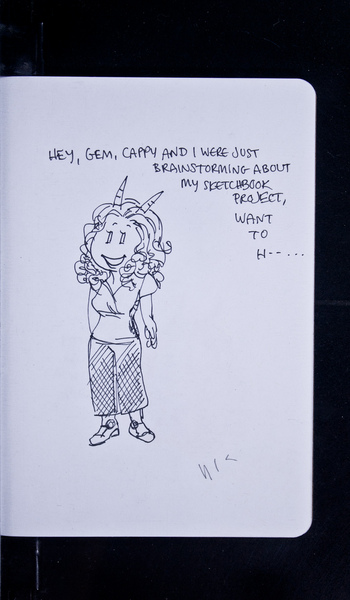 HEY, GEM, CAPPY AND I WERE JUST
BRAINSTORMING ABOUT
MY SKETCHBOOK
PROJECT,
WANT
TO
H--...